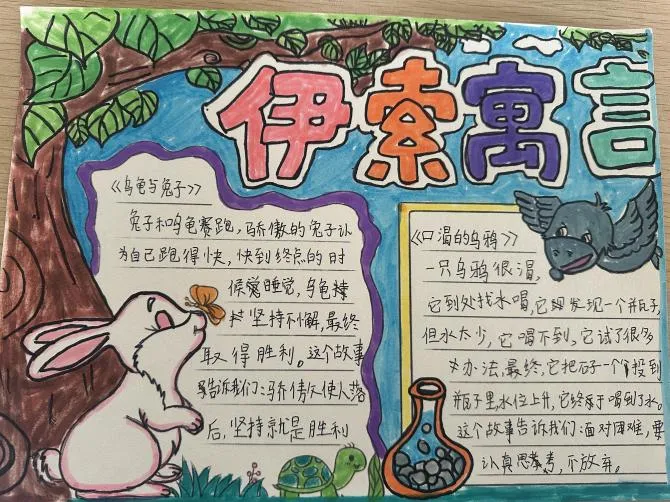 伊索寓言
《乌龟与兔子》
兔子和乌龟赛跑,骄傲的兔子认
为自己跑得快,快到终点的时
候睡觉,乌龟
坚持不懈,最终
取得胜利。这个故事
告诉我们:骄傲使人落
后,坚持就是胜利
《口渴的乌鸦》
一只乌鸦很渴,
它到处找水喝,它发现一个瓶子,
但水太少,它喝不到,它试了很多
办法,最终,它把石子一个个投到
瓶子里,水位上升,它终于喝到了水。
这个故事告诉我们:面对困难,要
认真思考,不放弃。